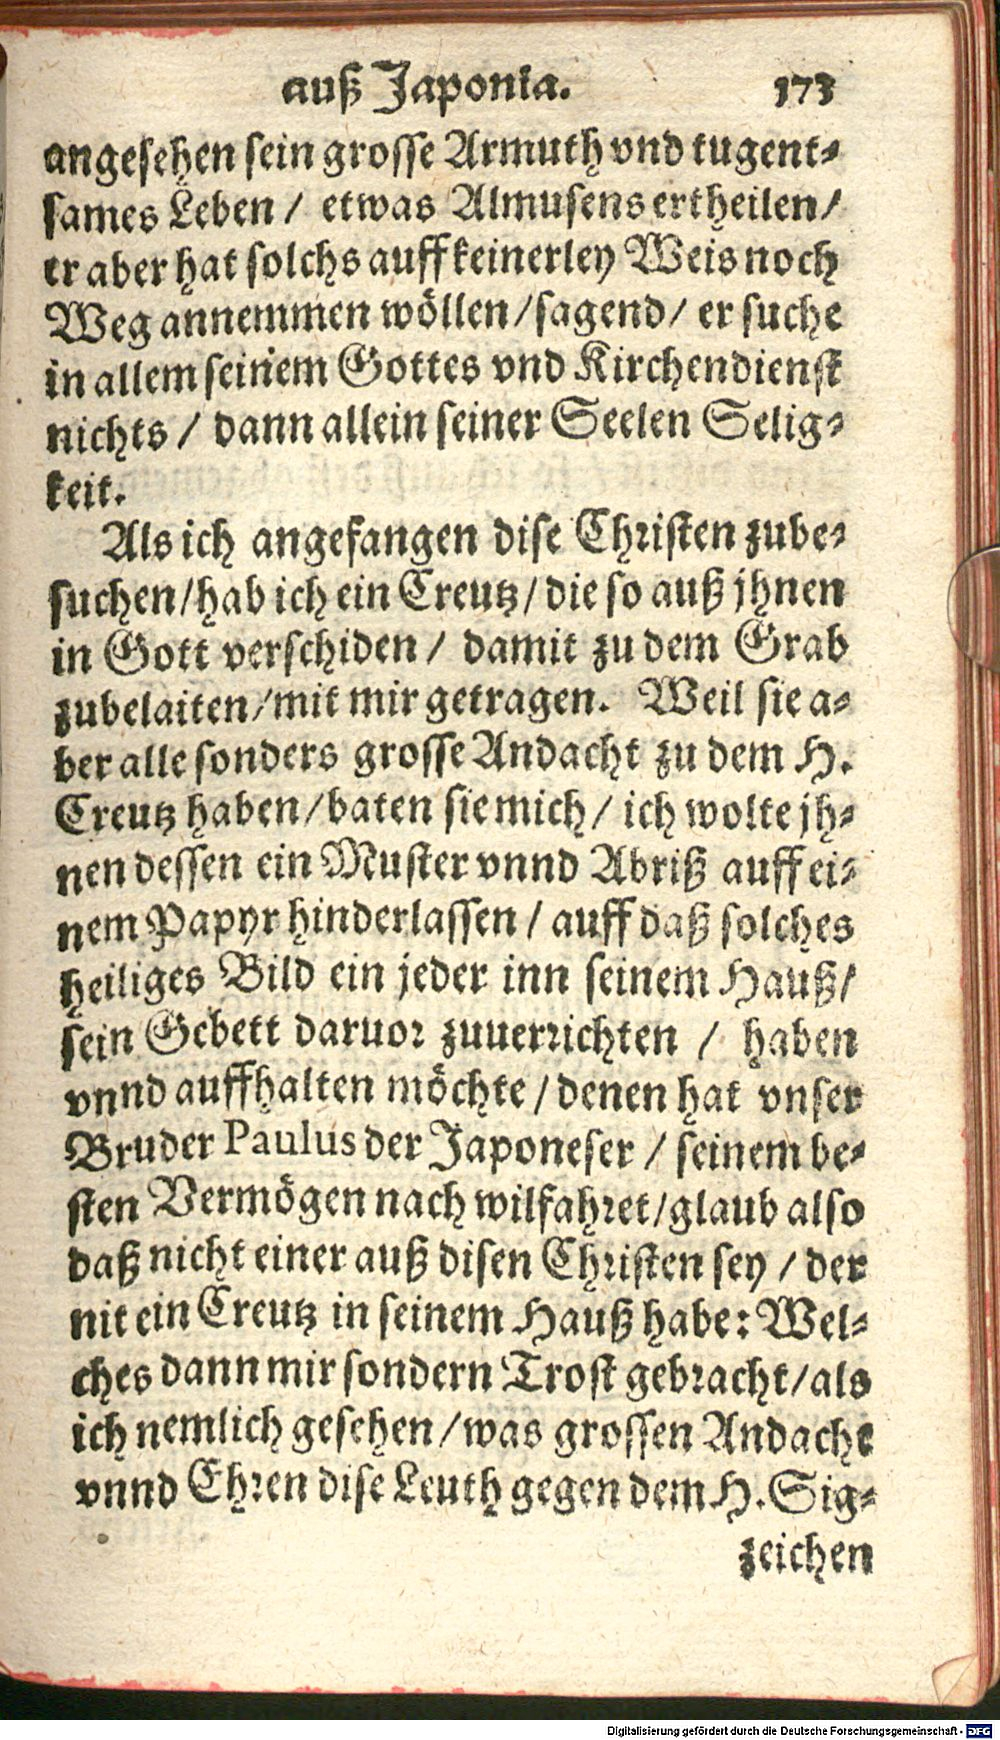 auß Japonia. 173
angesehen sein grosse Armuth vnd tugent-
sames Leben / etwas Almusens ertheilen /
er aber hat solchs auff keinerley Weis noch
Weg annemmen wöllen / sagend / er suche
in allem seinem Gottes vnd Kirchendienst
nichts / dann allein seiner Seelen Selig-
keit.
Als ich angefangen dise Christen zube-
suchen / hab ich ein Creutz / die so auß jhnen
in Gott verschiden / damit zu dem Grab
zubelaiten / mit mir getragen. Weil sie a-
ber alle sonders grosse Andacht zu dem H.
Creutz haben / baten sie mich / ich wolte jh-
nen dessen ein Muster vnnd Abriß auff ei-
nem Papyr hinderlassen / auff daß solches
heiliges Bild ein jeder inn seinem Hauß /
sein Gebett daruor zuuerrichten / haben
vnnd auffhalten möchte / denen hat vnser
Bruder Paulus der Japoneser / seinem be-
sten Vermögen nach wilfahret / glaub also
daß nicht einer auß disen Christen sey / der
nit ein Creutz in seinem Hauß habe: Wel-
ches dann mir sondern Trost gebracht / als
ich nemlich gesehen / was grossen Andacht
vnnd Ehren dise Leuth gegen dem H. Sig-
zeichen
Digitalisierung gefördert durch die Deutsche Forschungsgemeinschaft - DFG